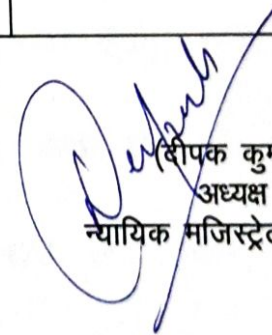 (दीपक कुम
अध्यक्ष
न्यायिक मजिस्ट्रेट